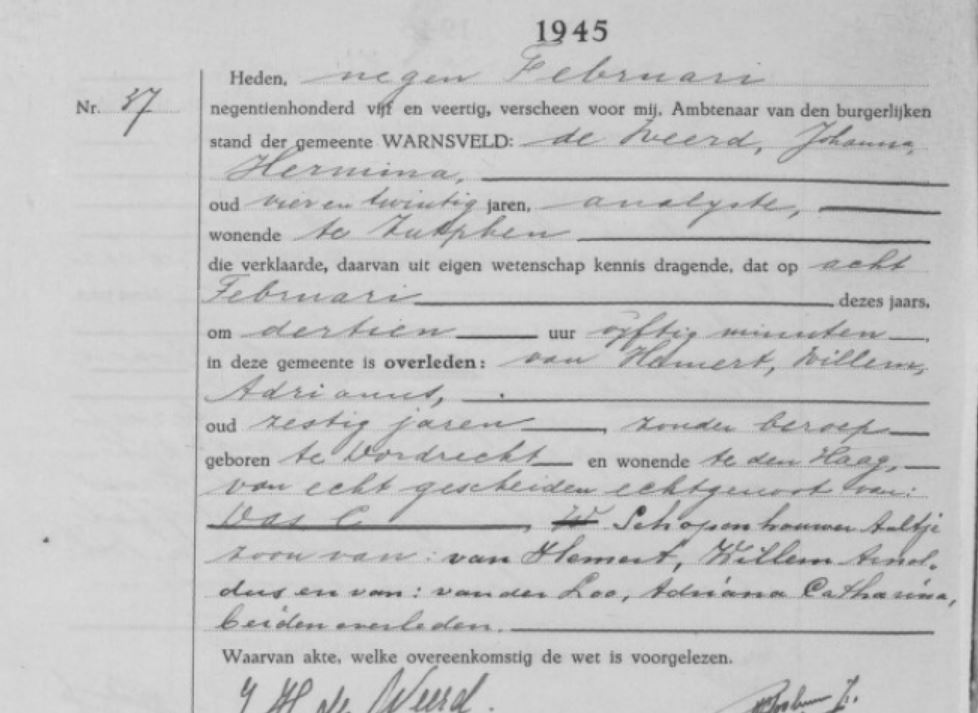 1945
Heden, negen Februari
Nr. 37
negentienhonderd vijf en veertig, verscheen voor mij, Ambtenaar van den burgerlijken
stand der gemeente WARNSVELD: de Weerd, Johanna,
Hermina,
oud vier en twintig jaren, analyste,
wonende te Zutphen
die verklaarde, daarvan uit eigen wetenschap kennis dragende, dat op acht
Februari dezes jaars,
om dertien uur vijftig minuten,
in deze gemeente is overleden: van Hemert, Willem,
Adrianus,
oud zestig jaren, zonder beroep
geboren te Dordrecht en wonende te den Haag,
van echt gescheiden echtgenoot van:
Was C, Schopenhouwer Aaltje
zoon van: van Hemert, Willem Arnol-
dus en van: van der Loo, Adriana Catharina,
beiden overleden.
Waarvan akte, welke overeenkomstig de wet is voorgelezen.
J H de Weerd.